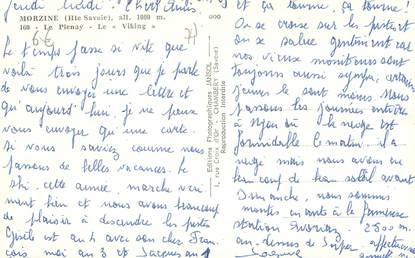 jeudi midi
MORZINE (Hte Savoie), alt. 1000 m.
168 - Le Pleney - Le « Viking »
6€
71
le temps passe si vite que
voilà trois jours que je parle
de vous envoyer une lettre et
qu'aujourd'hui je ne peux
vous envoyer qu'une carte.
si vous saviez comme nous
passons de belles vacances. le
ski, cette année, marche vrai-
ment bien et nous avons beaucoup
de plaisir à descendre les pistes
Gisèle est au 4 avec son cher Fran-
çois moi au 3 et Jacques au 1
Editions Photographiques JANSOL
1, rue Croix d'Or - CHAMBERY (Savoie)
Reproduction Interdite
et ça tourne, ça tourne!
On se croise sur les pistes et
on se salue gentiment car
nos vieux moniteurs sont
toujours aussi sympa, certains
jeunes le sont moins. Nous
passons les journées entières
à où la neige est
formidable le matin. Il a
neigé mais nous avons eu
un beau soleil avant
Dimanche, nous sommes
montés en auto à la fameuse
station 2800 m.
au-dessus de affectueuse